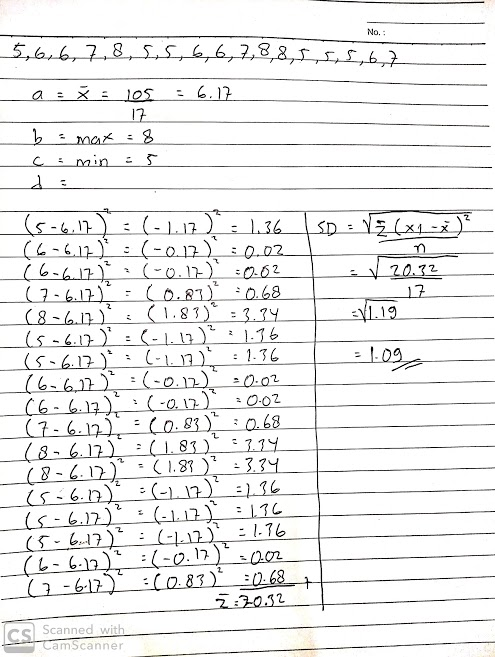 No. :
5, 6, 6, 7, 8, 5, 5, 6, 6, 7, 8, 8, 5, 5, 5, 6, 7
a = x̄ = 105/17 = 6.17
b = max = 8
c = min = 5
d =
(5 - 6.17)² = (-1.17)² = 1.36
(6 - 6.17)² = (-0.17)² = 0.02
(6 - 6.17)² = (-0.17)² = 0.02
(7 - 6.17)² = (0.83)² = 0.68
(8 - 6.17)² = (1.83)² = 3.34
(5 - 6.17)² = (-1.17)² = 1.36
(5 - 6.17)² = (-1.17)² = 1.36
(6 - 6.17)² = (-0.17)² = 0.02
(6 - 6.17)² = (-0.17)² = 0.02
(7 - 6.17)² = (0.83)² = 0.68
(8 - 6.17)² = (1.83)² = 3.34
(8 - 6.17)² = (1.83)² = 3.34
(5 - 6.17)² = (-1.17)² = 1.36
(5 - 6.17)² = (-1.17)² = 1.36
(5 - 6.17)² = (-1.17)² = 1.36
(6 - 6.17)² = (-0.17)² = 0.02
(7 - 6.17)² = (0.83)² = 0.68 +
Σ = 20.32
SD = √Σ(x1 - x̄)²/n
= √20.32/17
= √1.19
= 1.09
CS Scanned with
CamScanner